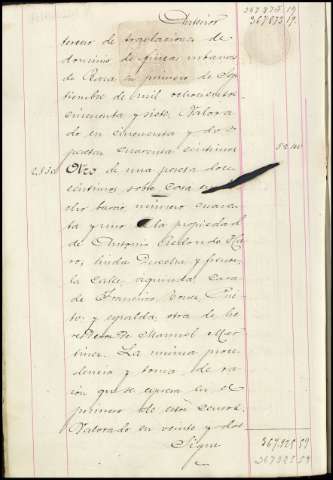 Anterior 367.873.19
367.873.19.
tercero de traslaciones de
dominio de fincas urbanas
de Roca en primero de Se
tiembre de mil ochocientos
cincuenta y siete. Valora
do en cincuenta y dos
pesetas cuarenta céntimos 52.40
Otro de una peseta doce
céntimos sobre casa
dho barrio número cuaren
ta y uno la propiedad
de Antonio Redondo
linda Derecha y frente
la calle, izquierda casa
de Francisco
y espalda otra de he
rederos de Manuel Mar
tinez. La misma proce
dencia y toma de ra
zón que se expresa en el
primero de estos censos.
Valorado en veinte y dos
Sigue 367.925.59
367.925.59